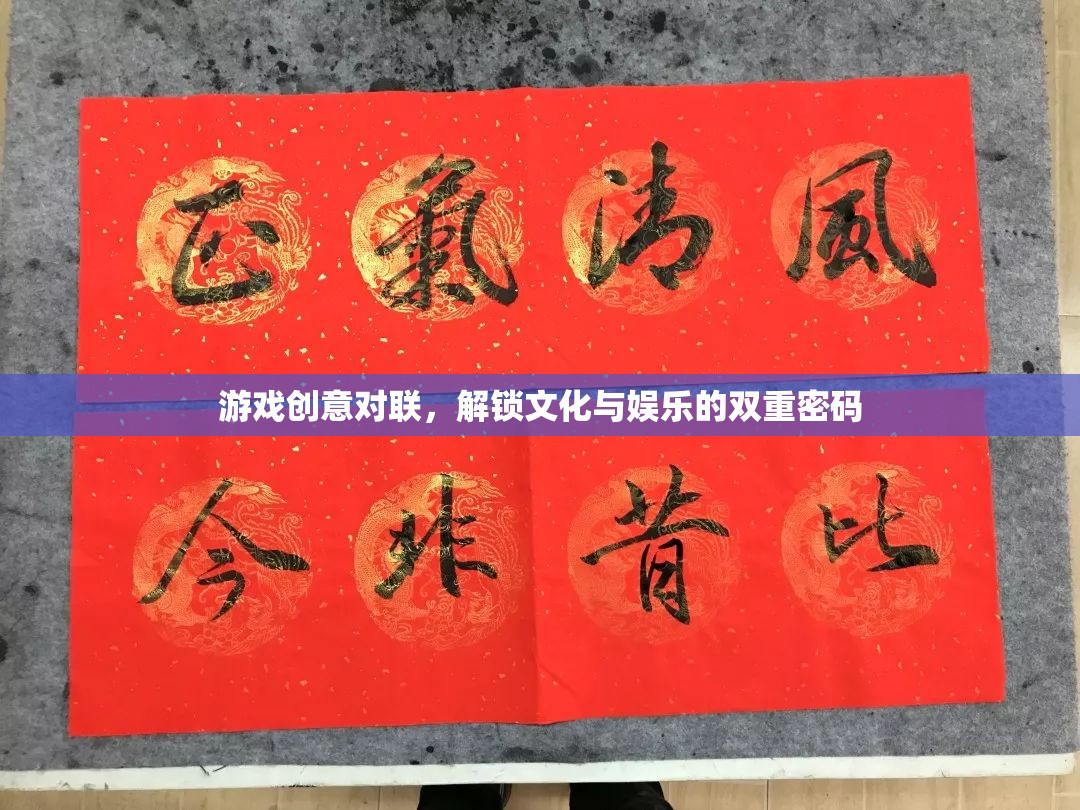 正氣清風
游戏创意对联，解锁文化与娱乐的双重密码
今非昔比